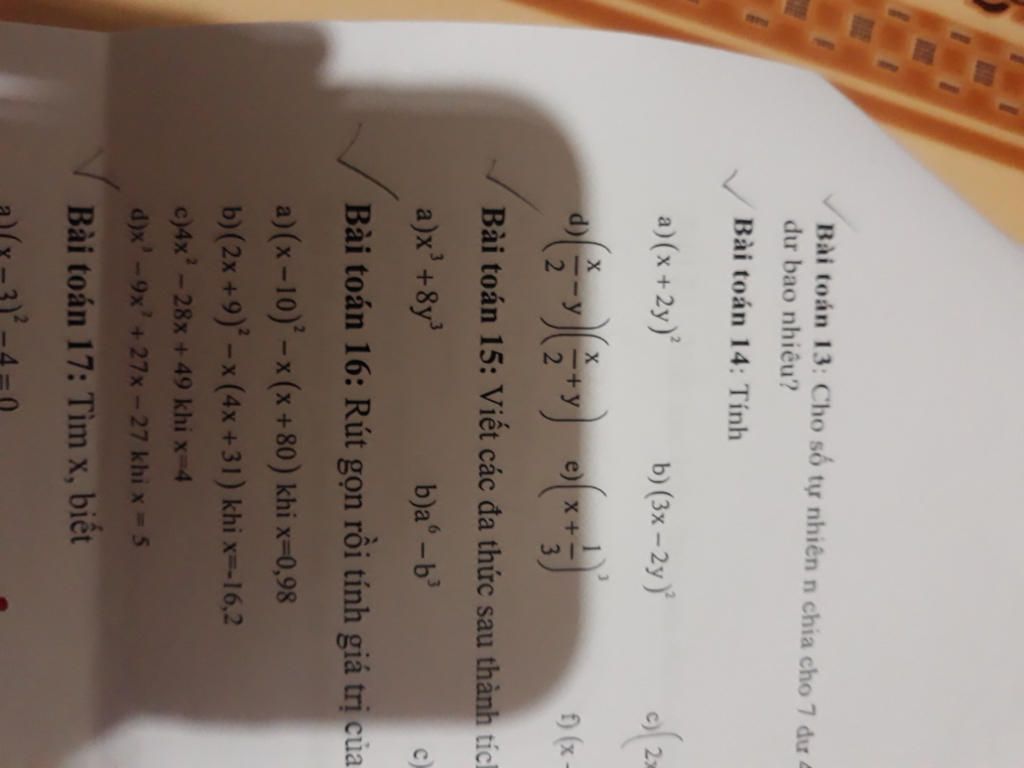 Bài toán 13: Cho số tự nhiên n chia cho 7 dư 4
dư bao nhiêu?
Bài toán 14: Tính
a)(x + 2y)² b)(3x − 2y)² c)(2x
d)(x/2 − y)(x/2 + y) e)(x + 1/3)³ f)(x −
Bài toán 15: Viết các đa thức sau thành tích
a)x³ + 8y³ b)a⁶ − b³ c)
Bài toán 16: Rút gọn rồi tính giá trị của
a)(x − 10)² − x(x + 80) khi x=0,98
b)(2x + 9)² − x(4x + 31) khi x=-16,2
c)4x² − 28x + 49 khi x=4
d)x³ − 9x² + 27x − 27 khi x = 5
Bài toán 17: Tìm x, biết
a)(x − 3)² − 4 = 0